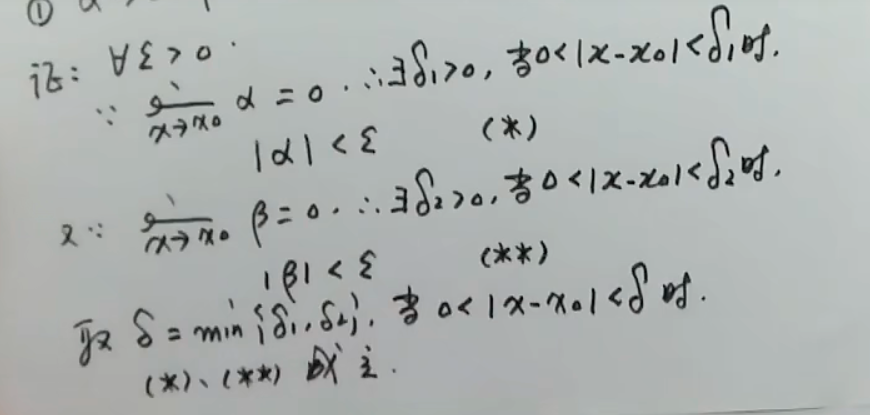 ①
证: ∀ε<0.
∵ lim x→x₀ α = 0. ∴∃δ₁>0, 当0<|x-x₀|<δ₁时.
|α|<ε (*)
又∵ lim x→x₀ β=0. ∴∃δ₂>0, 当0<|x-x₀|<δ₂时.
|β|<ε (**)
取 δ = min{δ₁,δ₂}, 当 0<|x-x₀|<δ 时.
(*)、(**) 成立.